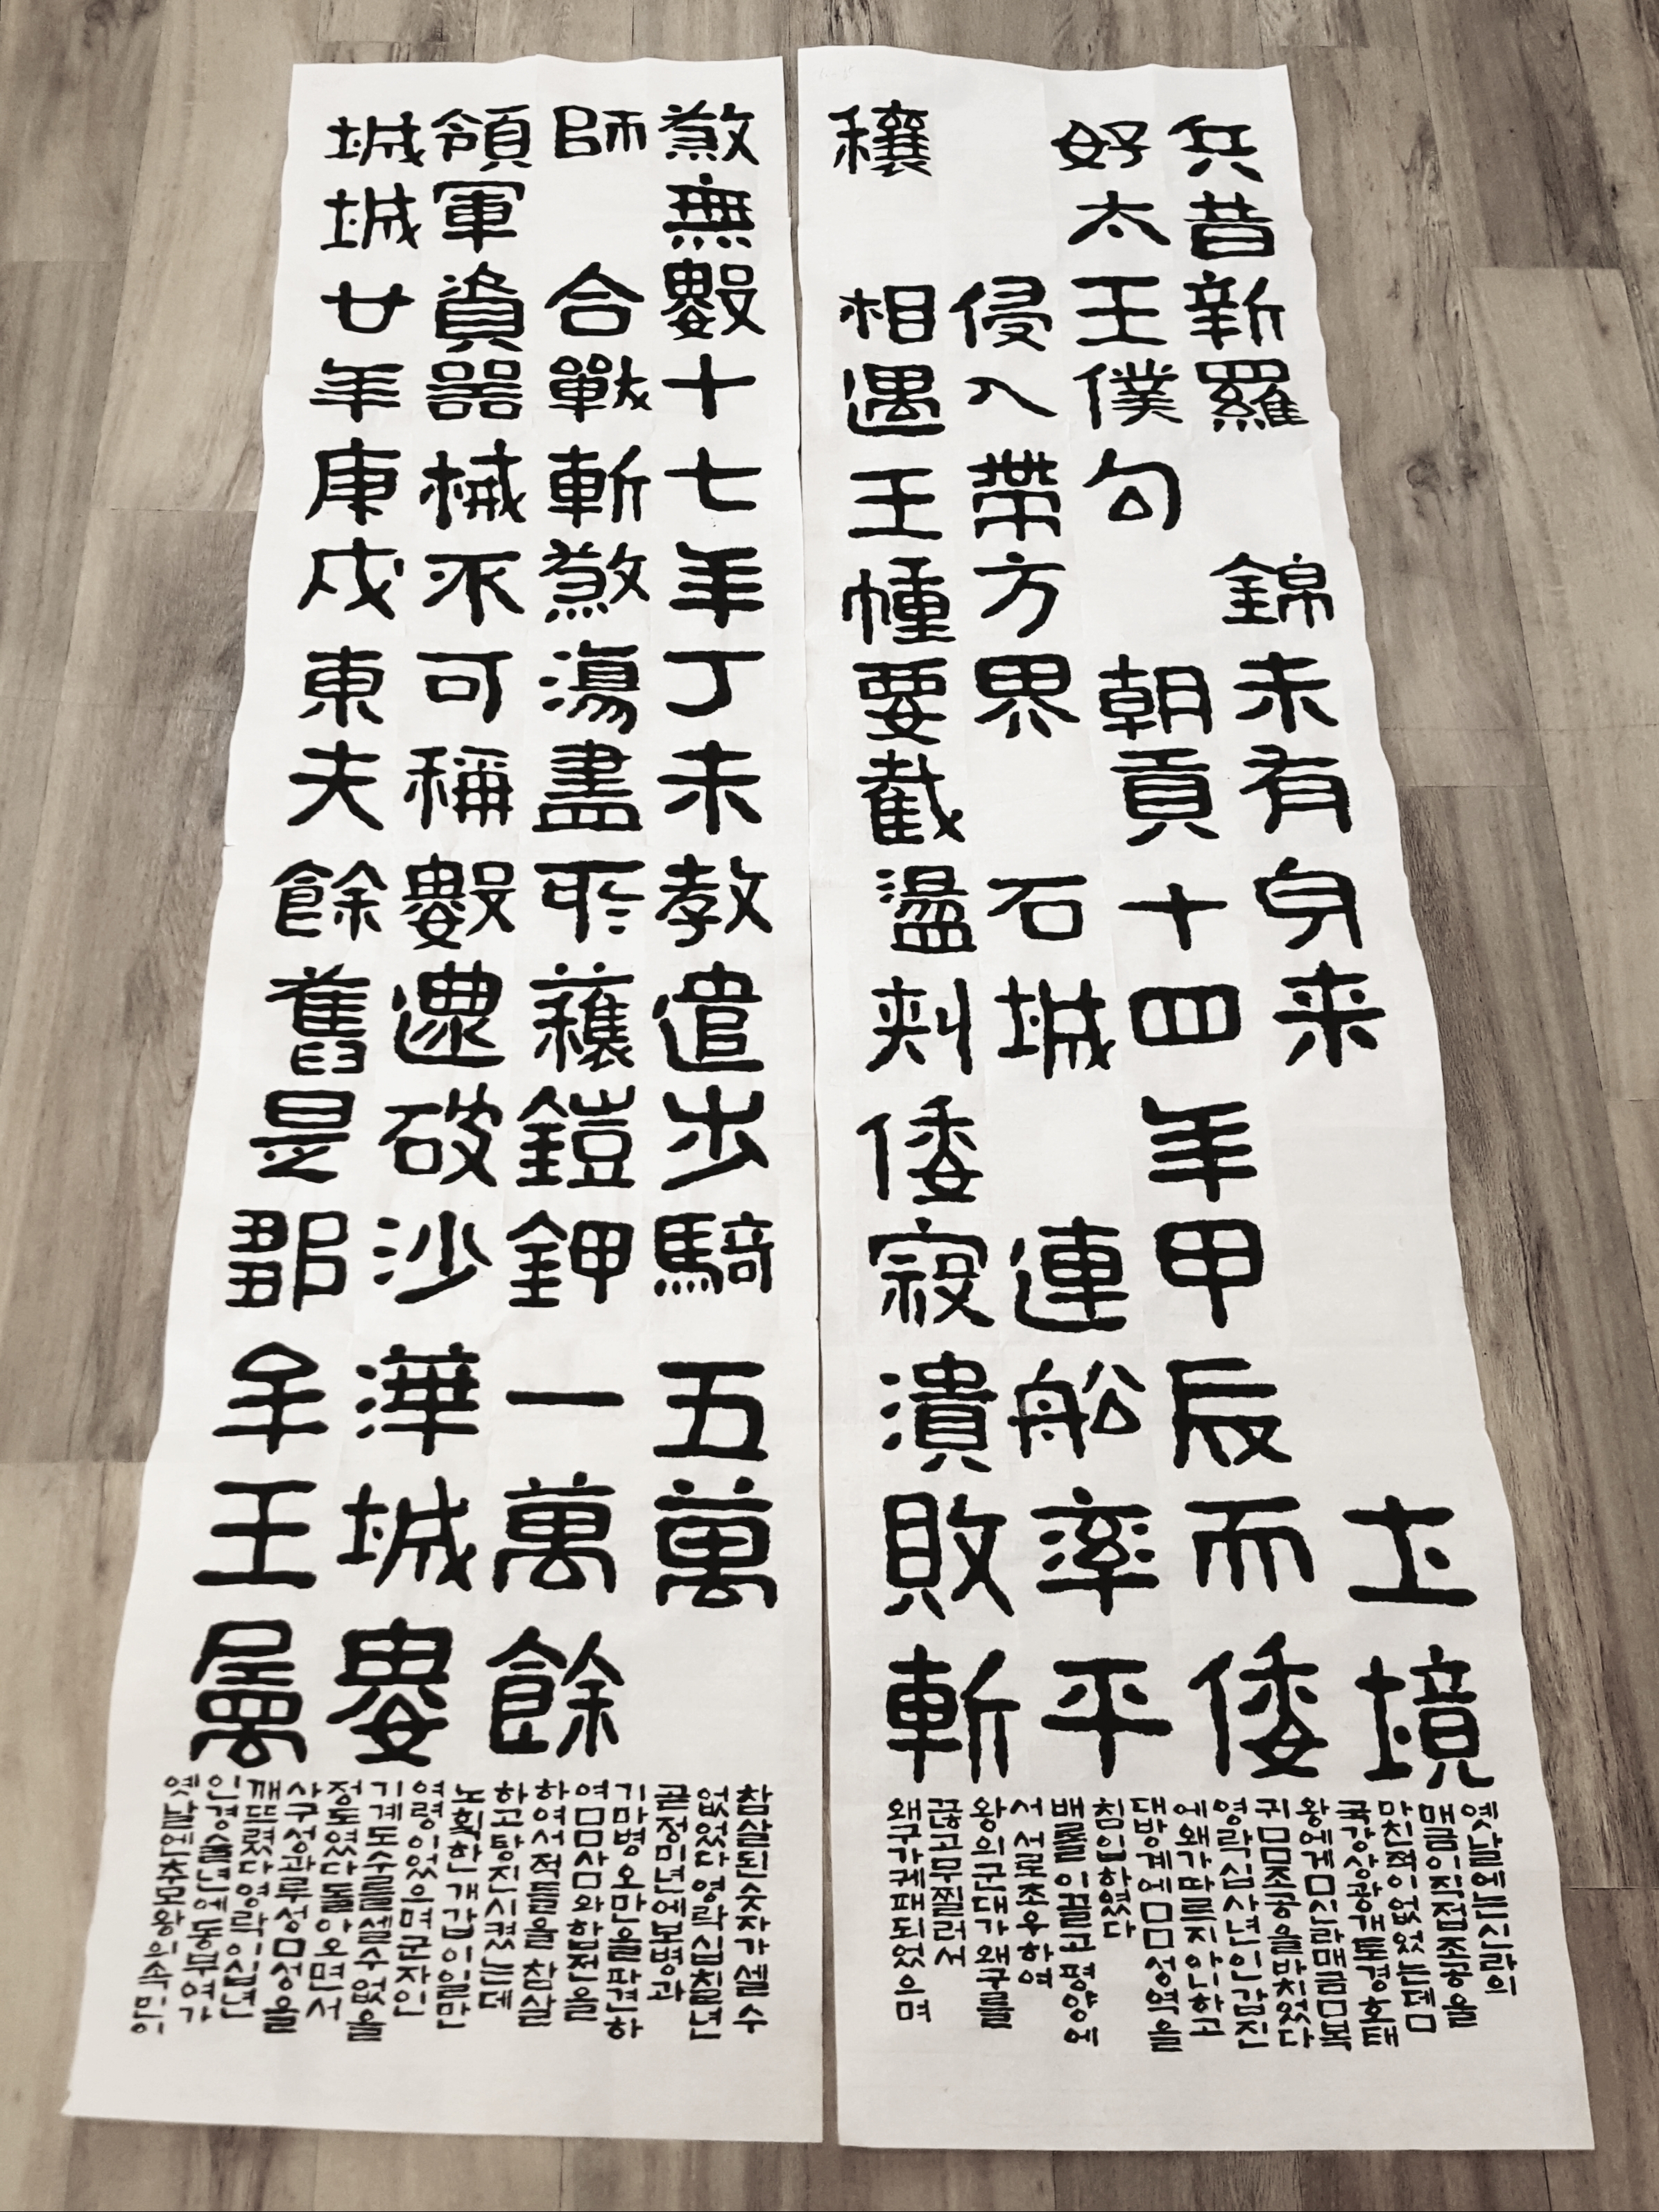 兵昔新羅 錦未有身来 土境
好太王僕句 朝貢十四年甲辰而倭
侵入帶方界 石城 連船率平
穰 相遇王幢要截盪刺倭寇潰敗斬
옛날에는신라의
매금이직접조공을
마친적이없었는데ㅁ
국강상광개토경호태
왕에게ㅁ신라매금ㅁ복
귀ㅁㅁ조공을마치었다
영락십사년인갑진
에왜가따르지아니하고
대방계에ㅁㅁ성역을
침입하였다
배를이끌고평양에
서서로조우하여
왕의군대가왜구를
끊고무찔러서
왜구가궤패되었으며
煞無數十七年丁未教遣步騎五萬
師 合戰斬煞湯盡所穫鎧鉀一萬餘
領軍資器械不可稱數還破沙溝城婁
城城廿年庚戌東夫餘舊是鄒牟王屬
참살된숫자가셀수
없었다영락십칠년
곧정미년에보병과
기마병오만을파견하
여ㅁㅁ사ㅁ와합전을
하여서적들을참살
하고탕진시켰는데
노획한개갑이일만
여령이었으며군자인
기계도수를셀수없을
정도였다돌아오면서
사구성과루성ㅁ성을
깨뜨렸다영락이십년
인경술년에동부여가
옛날엔추모왕의속민이